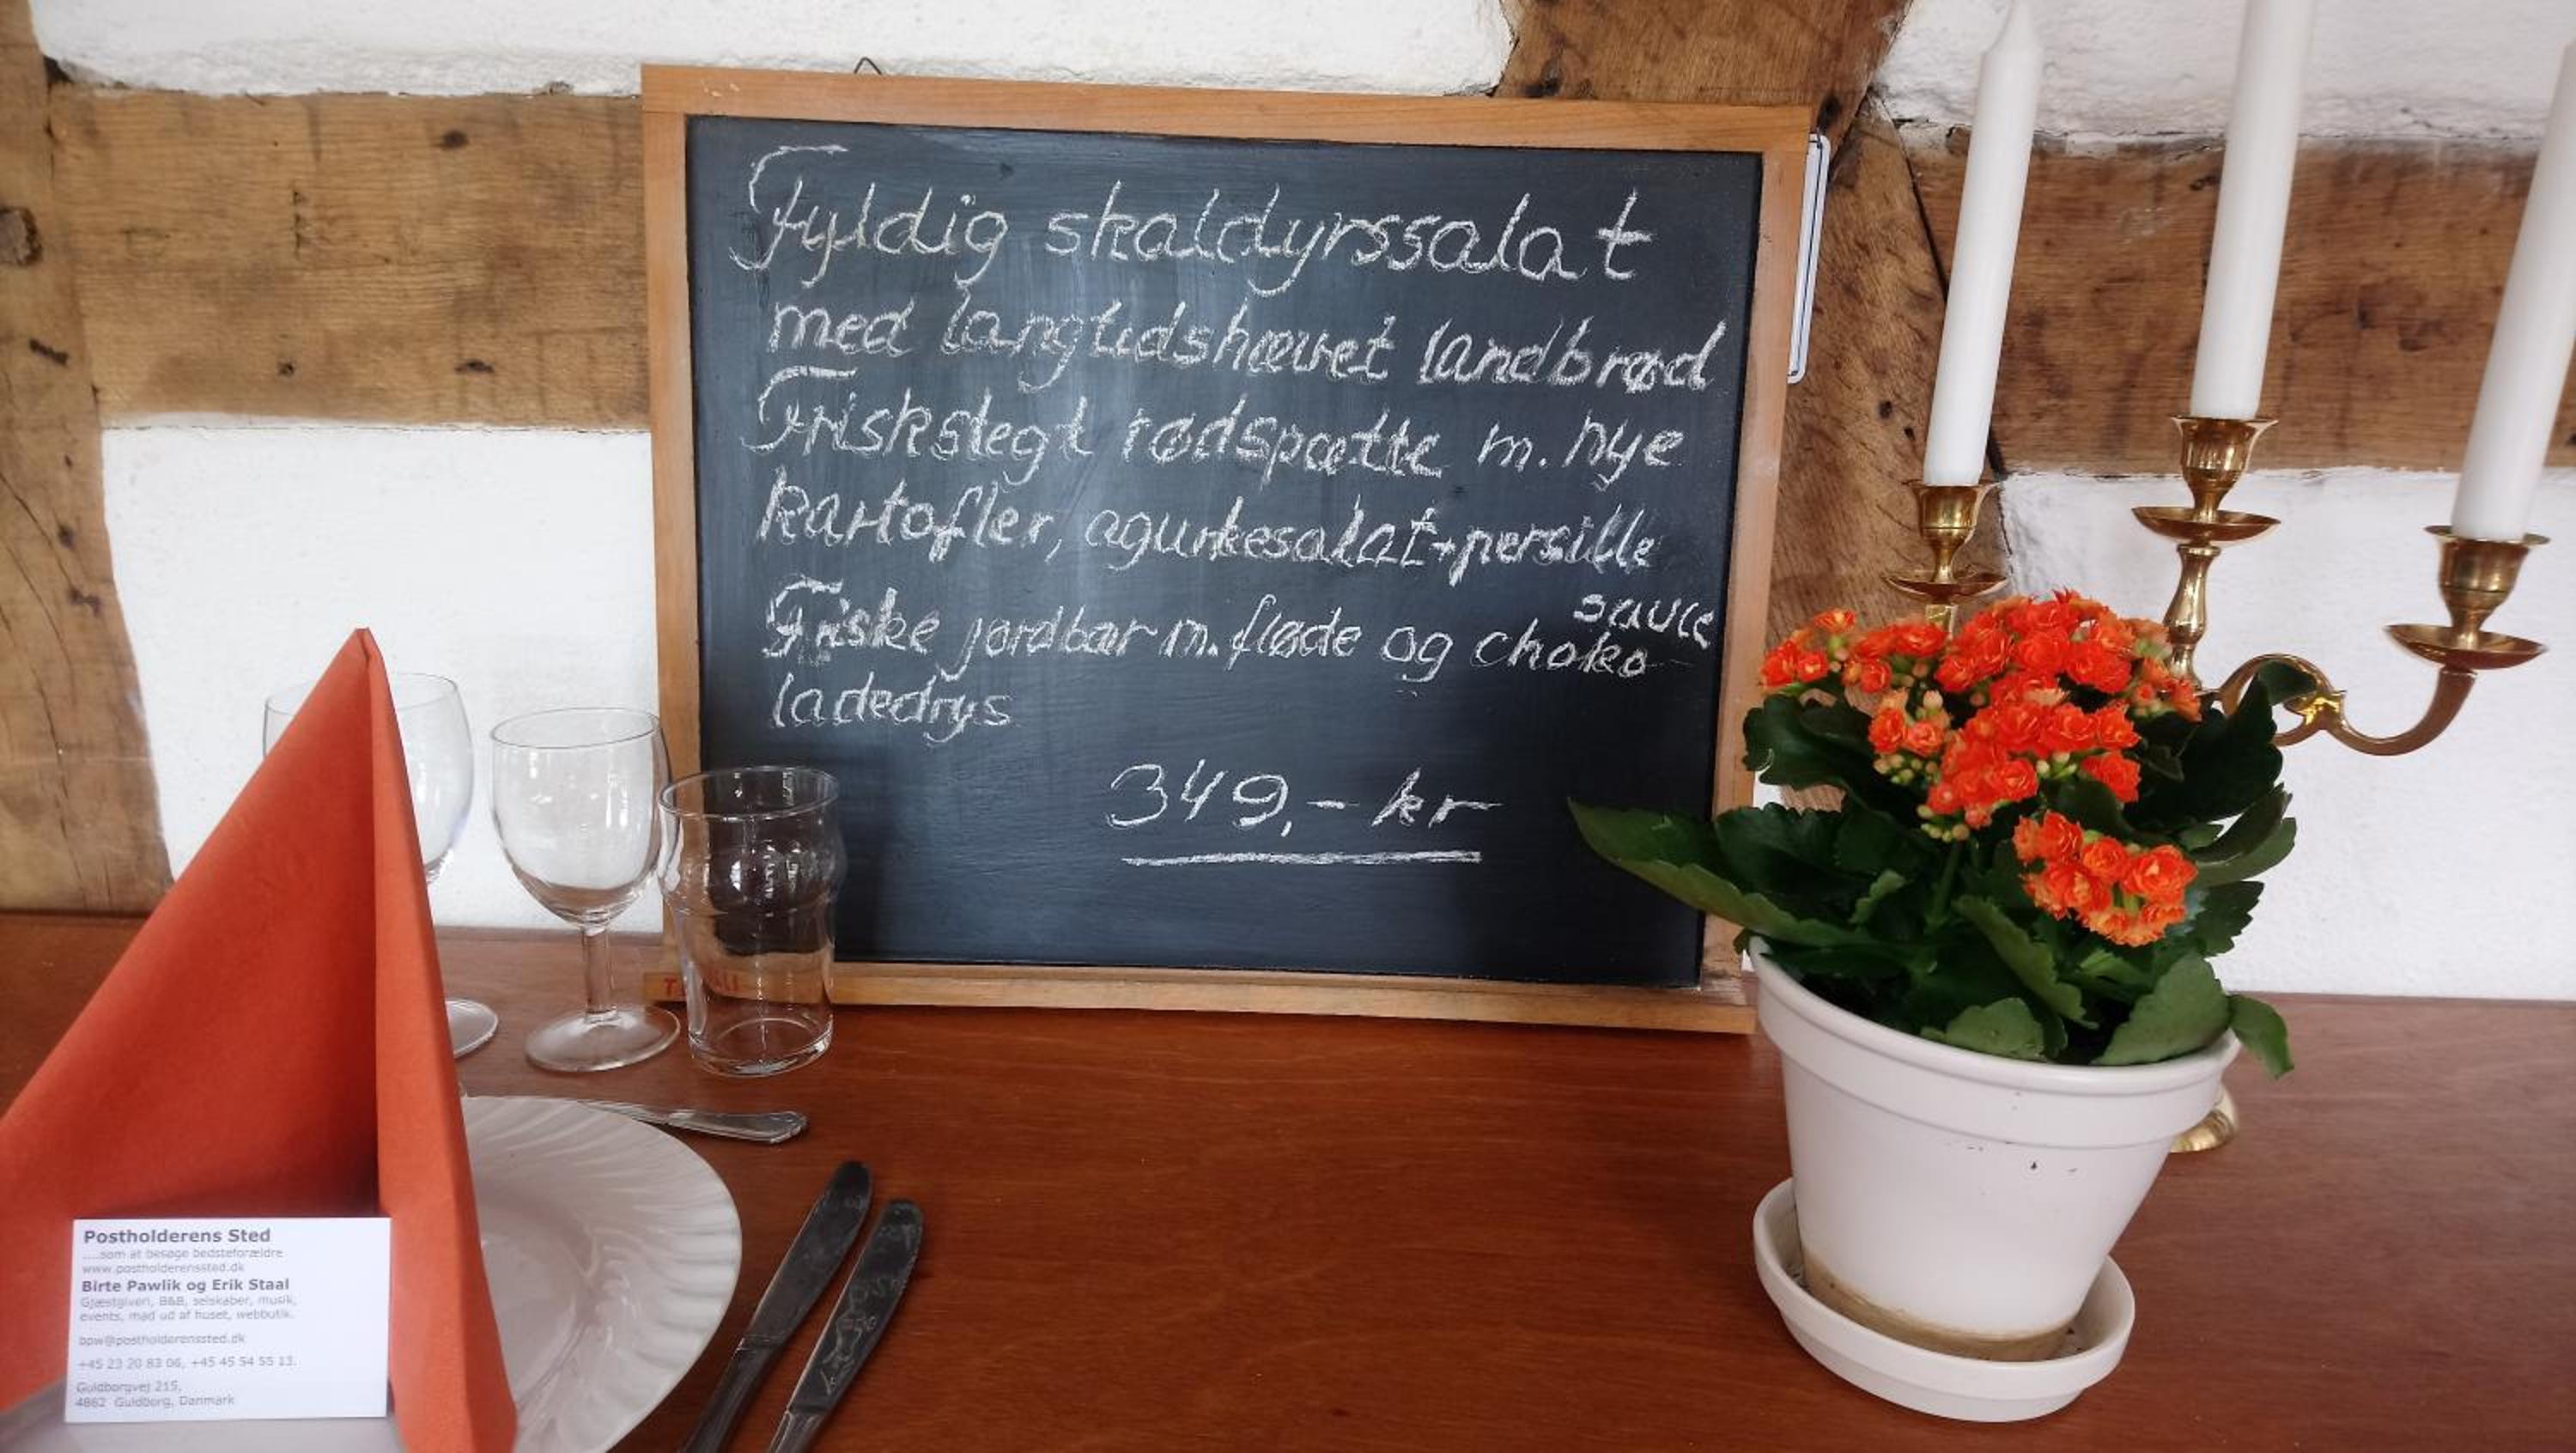 Fyldig skaldyrssalat
med langtidshævet landbrød
Friskstegt rødspætte m. nye
kartofler, agurkesalat + persille
sauce
Friske jordbær m. fløde og choko
ladedrys
349,- kr
Postholderens Sted
....som at besøge bedsteforældre
www.postholderenssted.dk
Birte Pawlik og Erik Staal
Gjæstgiveri, B&B, selskaber, musik,
events, mad ud af huset, webbutik.
bpw@postholderenssted.dk
+45 23 20 83 06, +45 45 54 55 13.
Guldborgvej 215,
4862 Guldborg, Danmark